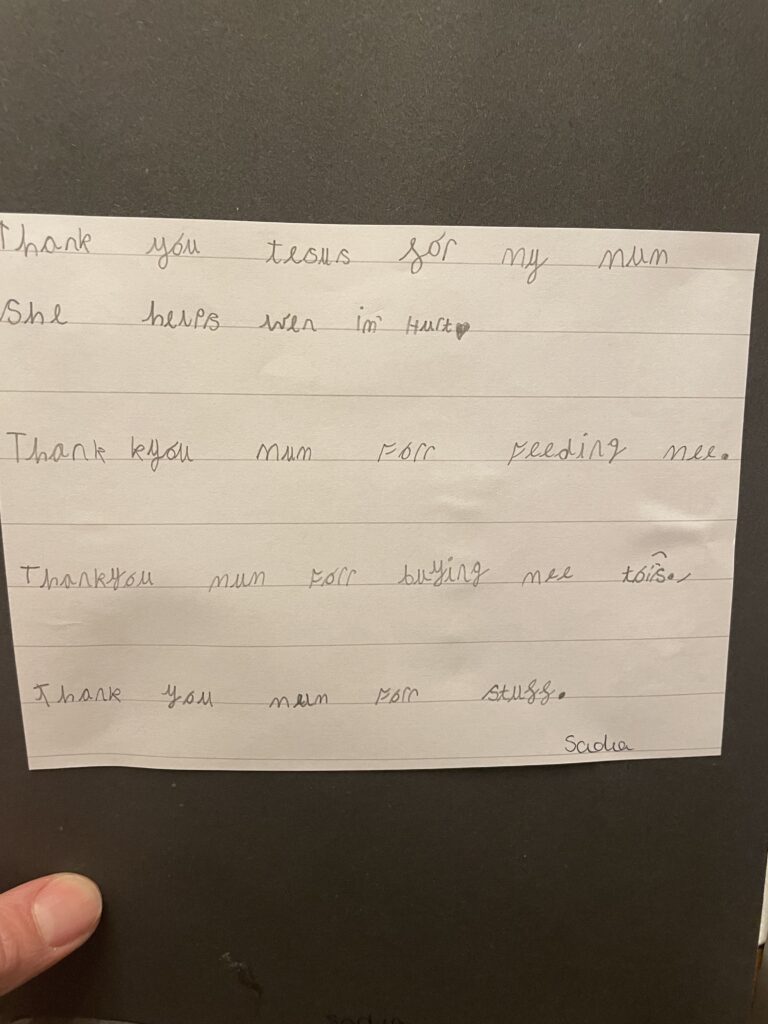 Thank you tesus for my mum
She helps wen im Hurt
Thank kyou mum Forr Feeding mee.
Thankyou mum Forr buying mee tois.
Thank you mum Forr stuff.